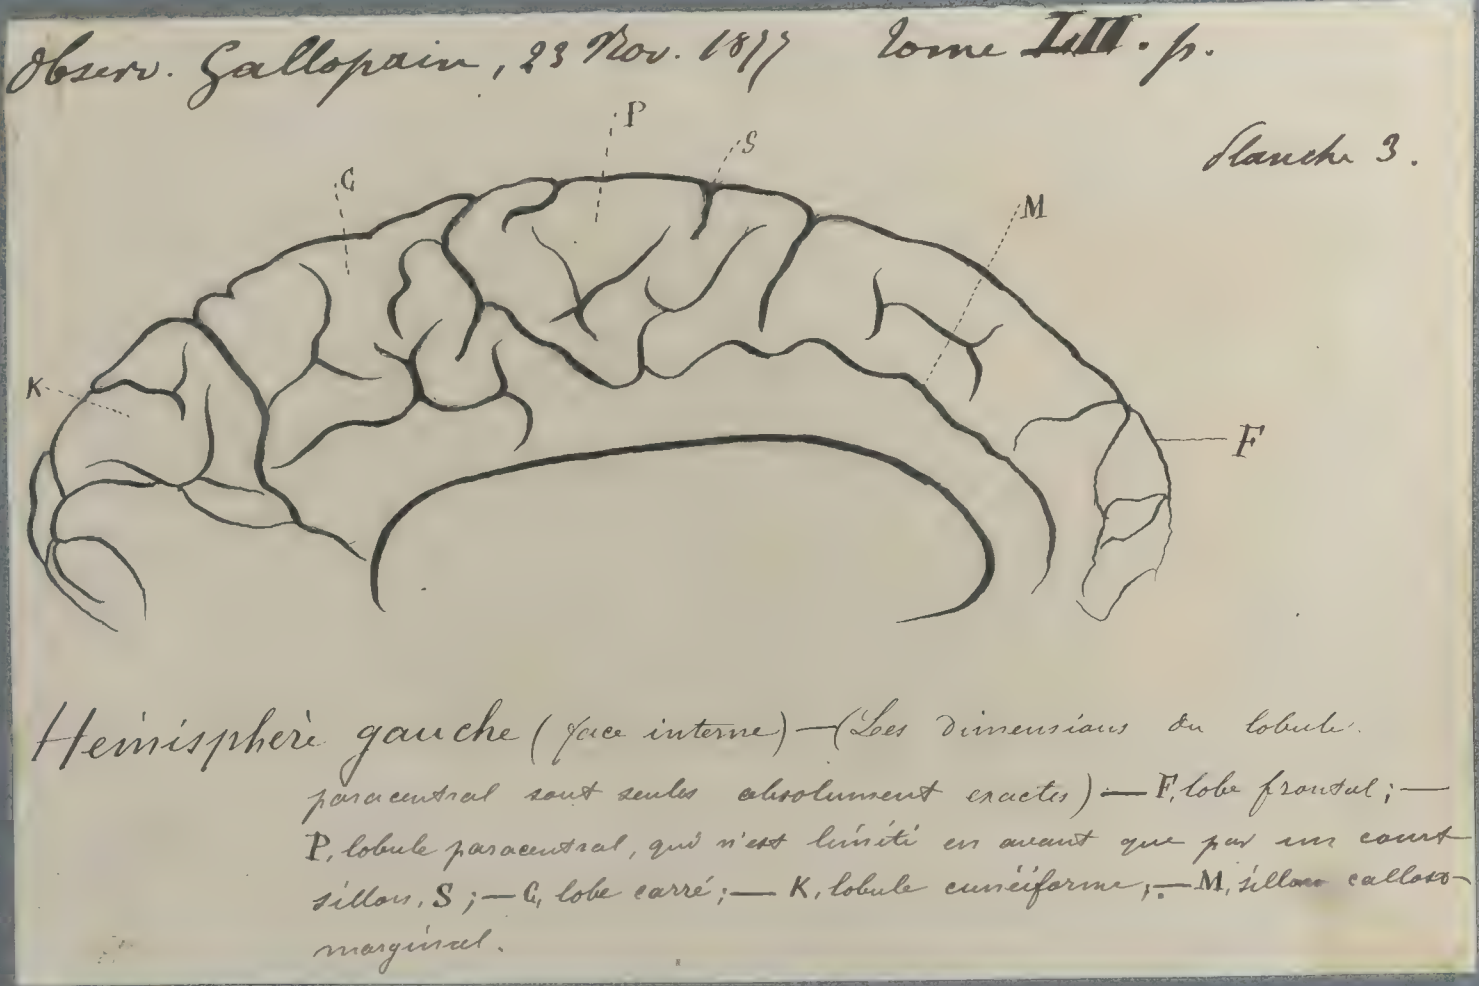 Observ. Gallopain, 23 Nov. 1877 Tome LII. p.
Planche 3.
P
S
C
M
K
F
Hémisphère gauche (face interne) — (Les dimensions du lobule
paracentral sont seules absolument exactes) — F, lobe frontal; —
P, lobule paracentral, qui n'est limité en avant que par un court
sillon, S; — C, lobe carré; — K, lobule cunéiforme; — M, sillon calloso-
marginal.